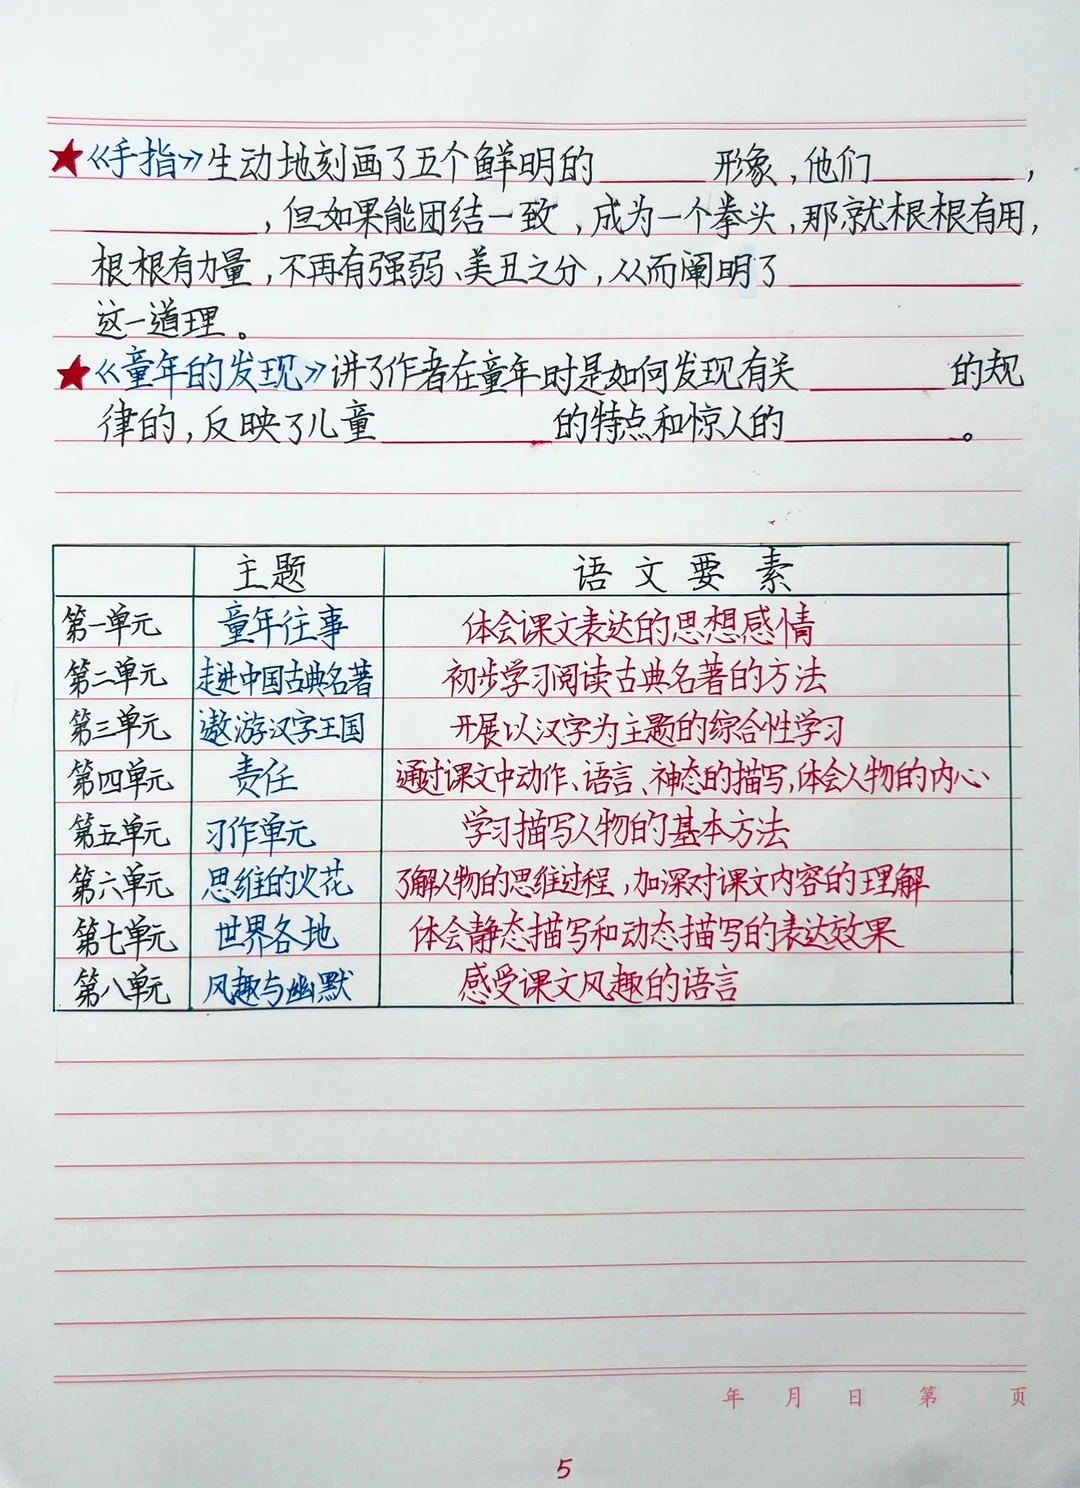 ★《手指》生动地刻画了五个鲜明的______形象,他们________,
____________,但如果能团结一致,成为一个拳头,那就根根有用,
根根有力量,不再有强弱、美丑之分,从而阐明了______________
这一道理。
★《童年的发现》讲了作者在童年时是如何发现有关________的规
律的,反映了儿童__________的特点和惊人的__________。
主题 语文要素
第一单元 童年往事 体会课文表达的思想感情
第二单元 走进中国古典名著 初步学习阅读古典名著的方法
第三单元 遨游汉字王国 开展以汉字为主题的综合性学习
第四单元 责任 通过课文中动作、语言、神态的描写,体会人物的内心
第五单元 习作单元 学习描写人物的基本方法
第六单元 思维的火花 了解人物的思维过程,加深对课文内容的理解
第七单元 世界各地 体会静态描写和动态描写的表达效果
第八单元 风趣与幽默 感受课文风趣的语言
年 月 日 第 页
5